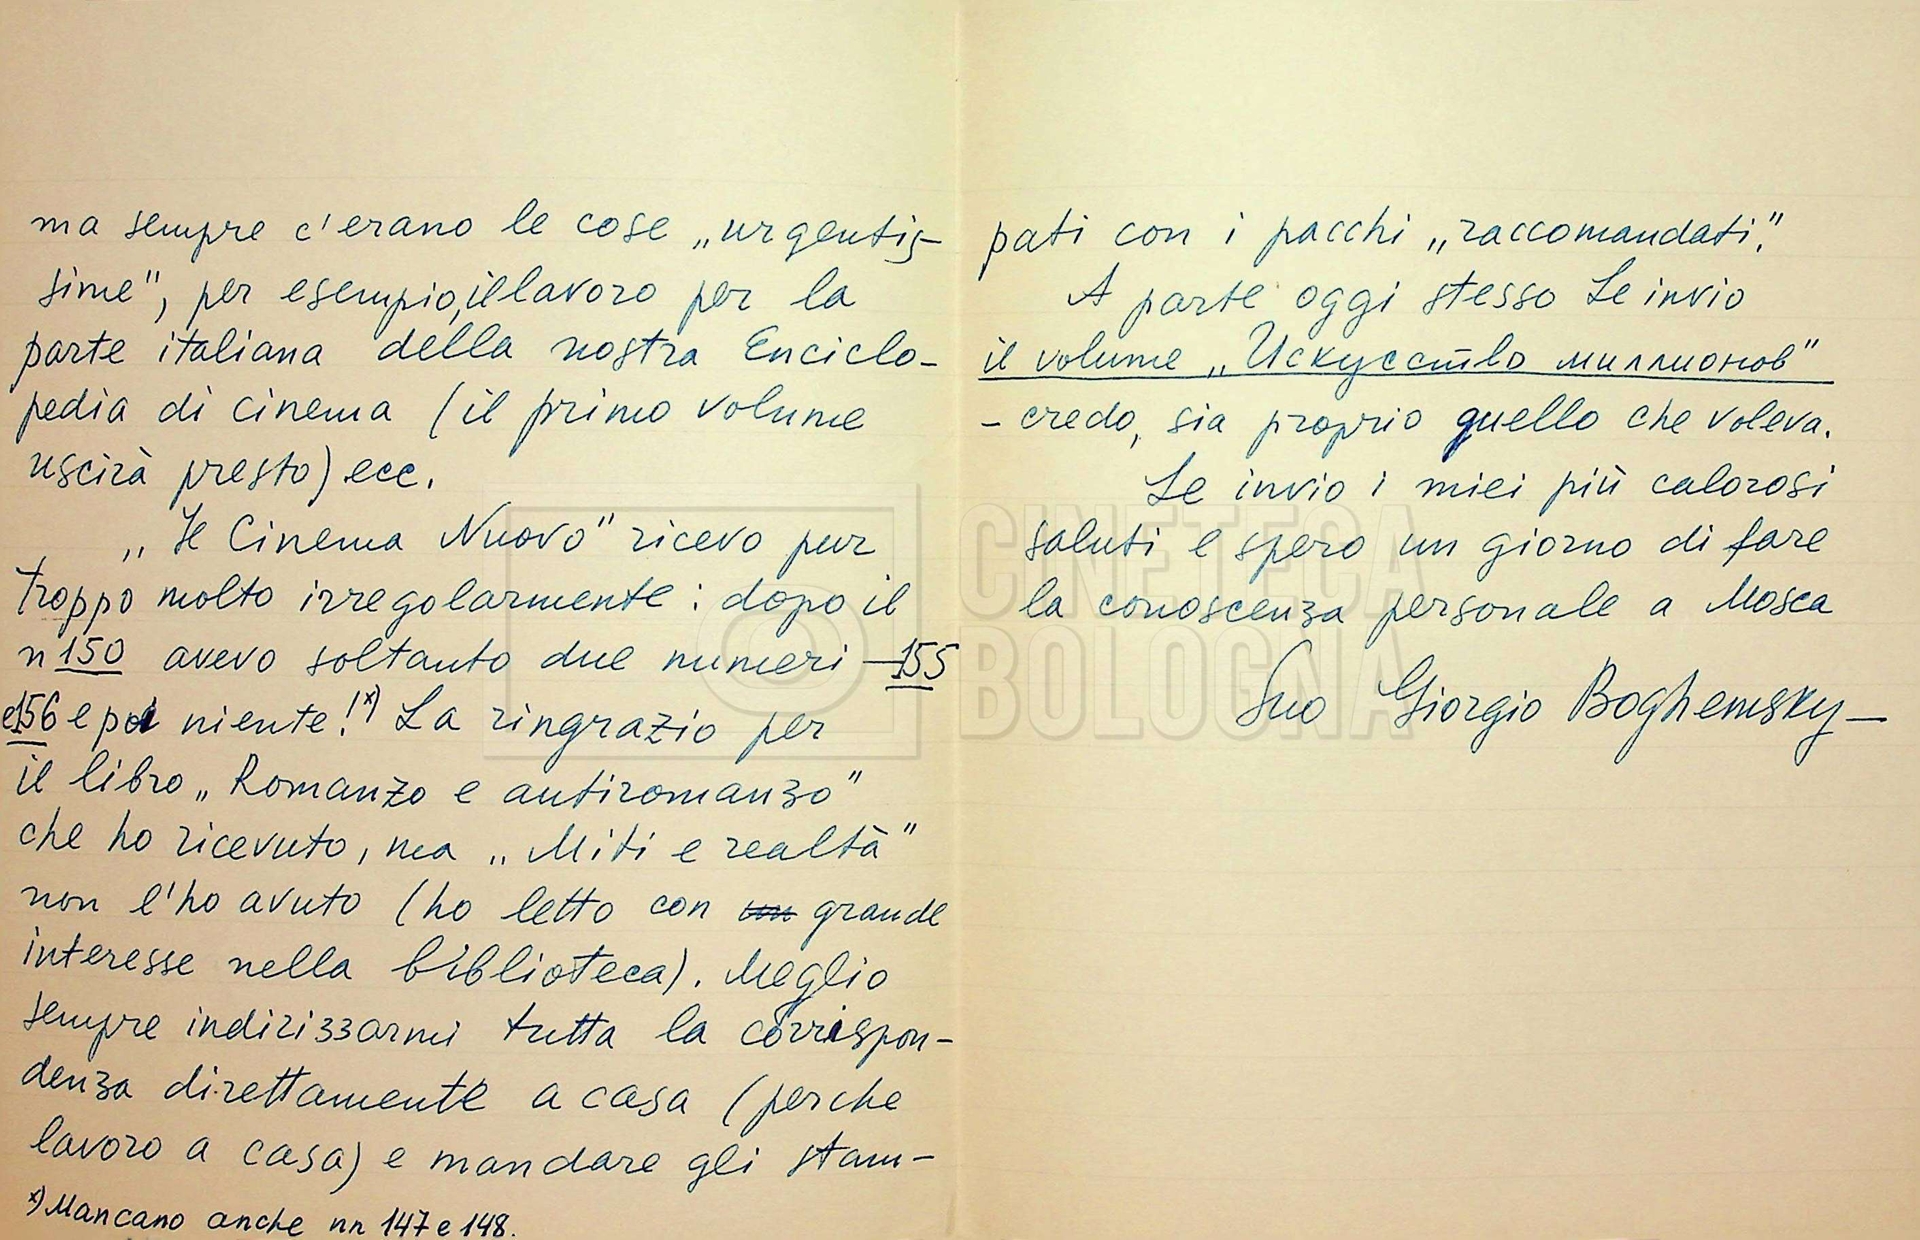 ma sempre c'erano le cose „urgentis-
sime", per esempio, il lavoro per la
parte italiana della nostra Enciclo-
pedia di cinema (il primo volume
uscirà presto) ecc.
„Il Cinema Nuovo" ricevo pur
troppo molto irregolarmente: dopo il
n 150 avevo soltanto due numeri — 155
e 156 e poi niente! x) La ringrazio per
il libro „Romanzo e antiromanzo"
che ho ricevuto, ma „Miti e realtà"
non l'ho avuto (ho letto con un grande
interesse nella biblioteca). Meglio
sempre indirizzarmi tutta la corrispon-
denza direttamente a casa (perche
lavoro a casa) e mandare gli stam-
x) Mancano anche nn 147 e 148.
pati con i pacchi „raccomandati."
A parte oggi stesso Le invio
il volume „Искусство миллионов"
- credo, sia proprio quello che voleva.
Le invio i miei più calorosi
saluti e spero un giorno di fare
la conoscenza personale a Mosca
Suo Giorgio Boghemsky —
CINETECA
BOLOGNA